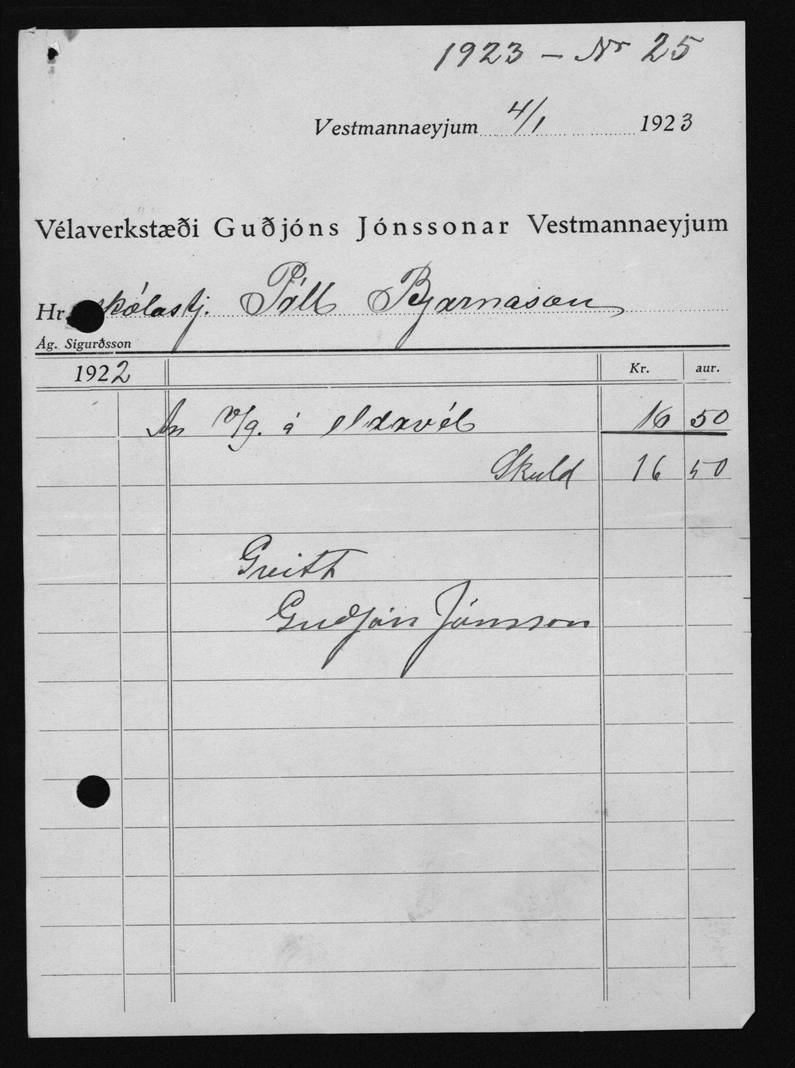 1923 - Nr 25
Vestmannaeyjum 4/1 1923
Vélaverkstæði Guðjóns Jónssonar Vestmannaeyjum
Hr. skólastj. Páll Bjarnason
Ág. Sigurðsson
1922 Kr. aur.
An v/g. á eldavél 16 50
Skuld 16 50
Greitt
Guðjón Jónsson